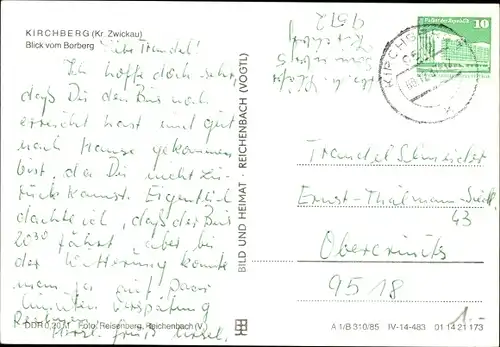 KIRCHBERG (Kr. Zwickau)
Blick vom Borberg
Liebe Traudel!
Ich hoffe doch sehr,
daß Du den Bus noch
erreicht hast und gut
nach Hause gekommen
bist, da Du nicht zu-
rück kamst. Eigentlich
dachte ich, daß der Bus
20³⁰ fährt, aber bei
der Witterung konnte
man ja mit paar
Minuten Verspätung
rechnen.
Herzl. Grüße
DDR 0,20 M Foto: Reisenberg, Reichenbach (V.)
BILD UND HEIMAT · REICHENBACH (VOGTL)
9512
KIRCHBERG
10
Traudel Schneider
Ernst-Thälmann-Siedl.
43
Obercrinitz
9518
1.-
A 1/B 310/85 IV-14-483 01 14 21 173